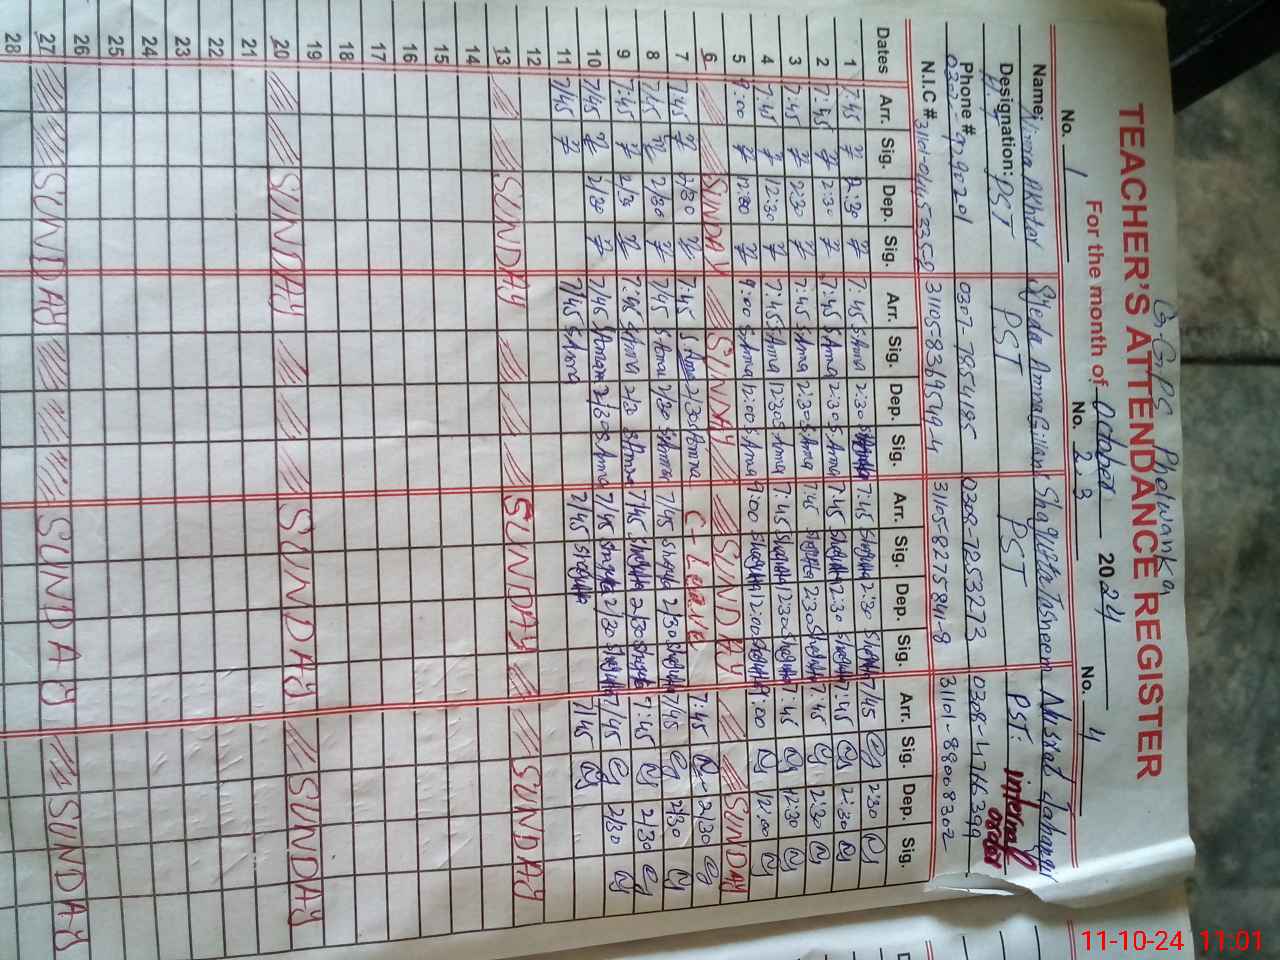 G.GPS Phelwanka
TEACHER'S ATTENDANCE REGISTER
For the month of October 2024
No. 1 No. 2 3 No. 4
Name: Nimra Akhtar Syeda Amna Gillani Shagufta Tasneem Nusrat Jahangir
Designation: PST PST PST PST. internal order
Phone # 0307-7854185 0308-7253273 0308-4766399
N.I.C # 31105-8369549-4 31105-8275841-8 31101-88008302
Dates Arr. Sig. Dep. Sig. Arr. Sig. Dep. Sig. Arr. Sig. Dep. Sig. Arr. Sig. Dep. Sig.
1 7:45 2:30 7:45 SAmna 2:30 7:45 2:30 7/45 2:30
2 7:45 2:30 7:45 SAmna 2:30 SAmna 7:45 2:30 7:45 2:30
3 7:45 2:30 7:45 SAmna 2:30 SAmna 7:45 2:30 7:45 2:30
4 7:45 12:30 7:45 SAmna 12:30 SAmna 7:45 12:30 7:45 12:30
5 9:00 12:00 9:00 SAmna 12:00 SAmna 9:00 12:00 9:00 12:00
6 SUNDAY SUNDAY SUNDAY SUNDAY
7 7:45 2/30 7:45 SAmna 2/30 SAmna C-Leave 7:45 2/30
8 7/45 2/30 7/45 SAmna 2/30 SAmna 7/45 2/30 7/45 2/30
9 7:45 2/30 7:45 SAmna 2/30 SAmna 7/45 2/30 7:45 2/30
10 7/45 2/30 7/45 SAmna 2/30 SAmna 7/45 2/30 7/45 2/30
11 7/45 7/45 SAmna 7/45 7/45
12
13 SUNDAY SUNDAY SUNDAY
14
15
16
17
18
19
20 SUNDAY SUNDAY SUNDAY
21
22
23
24
25
26
27 SUNDAY SUNDAY SUNDAY
28
11-10-24 11:01